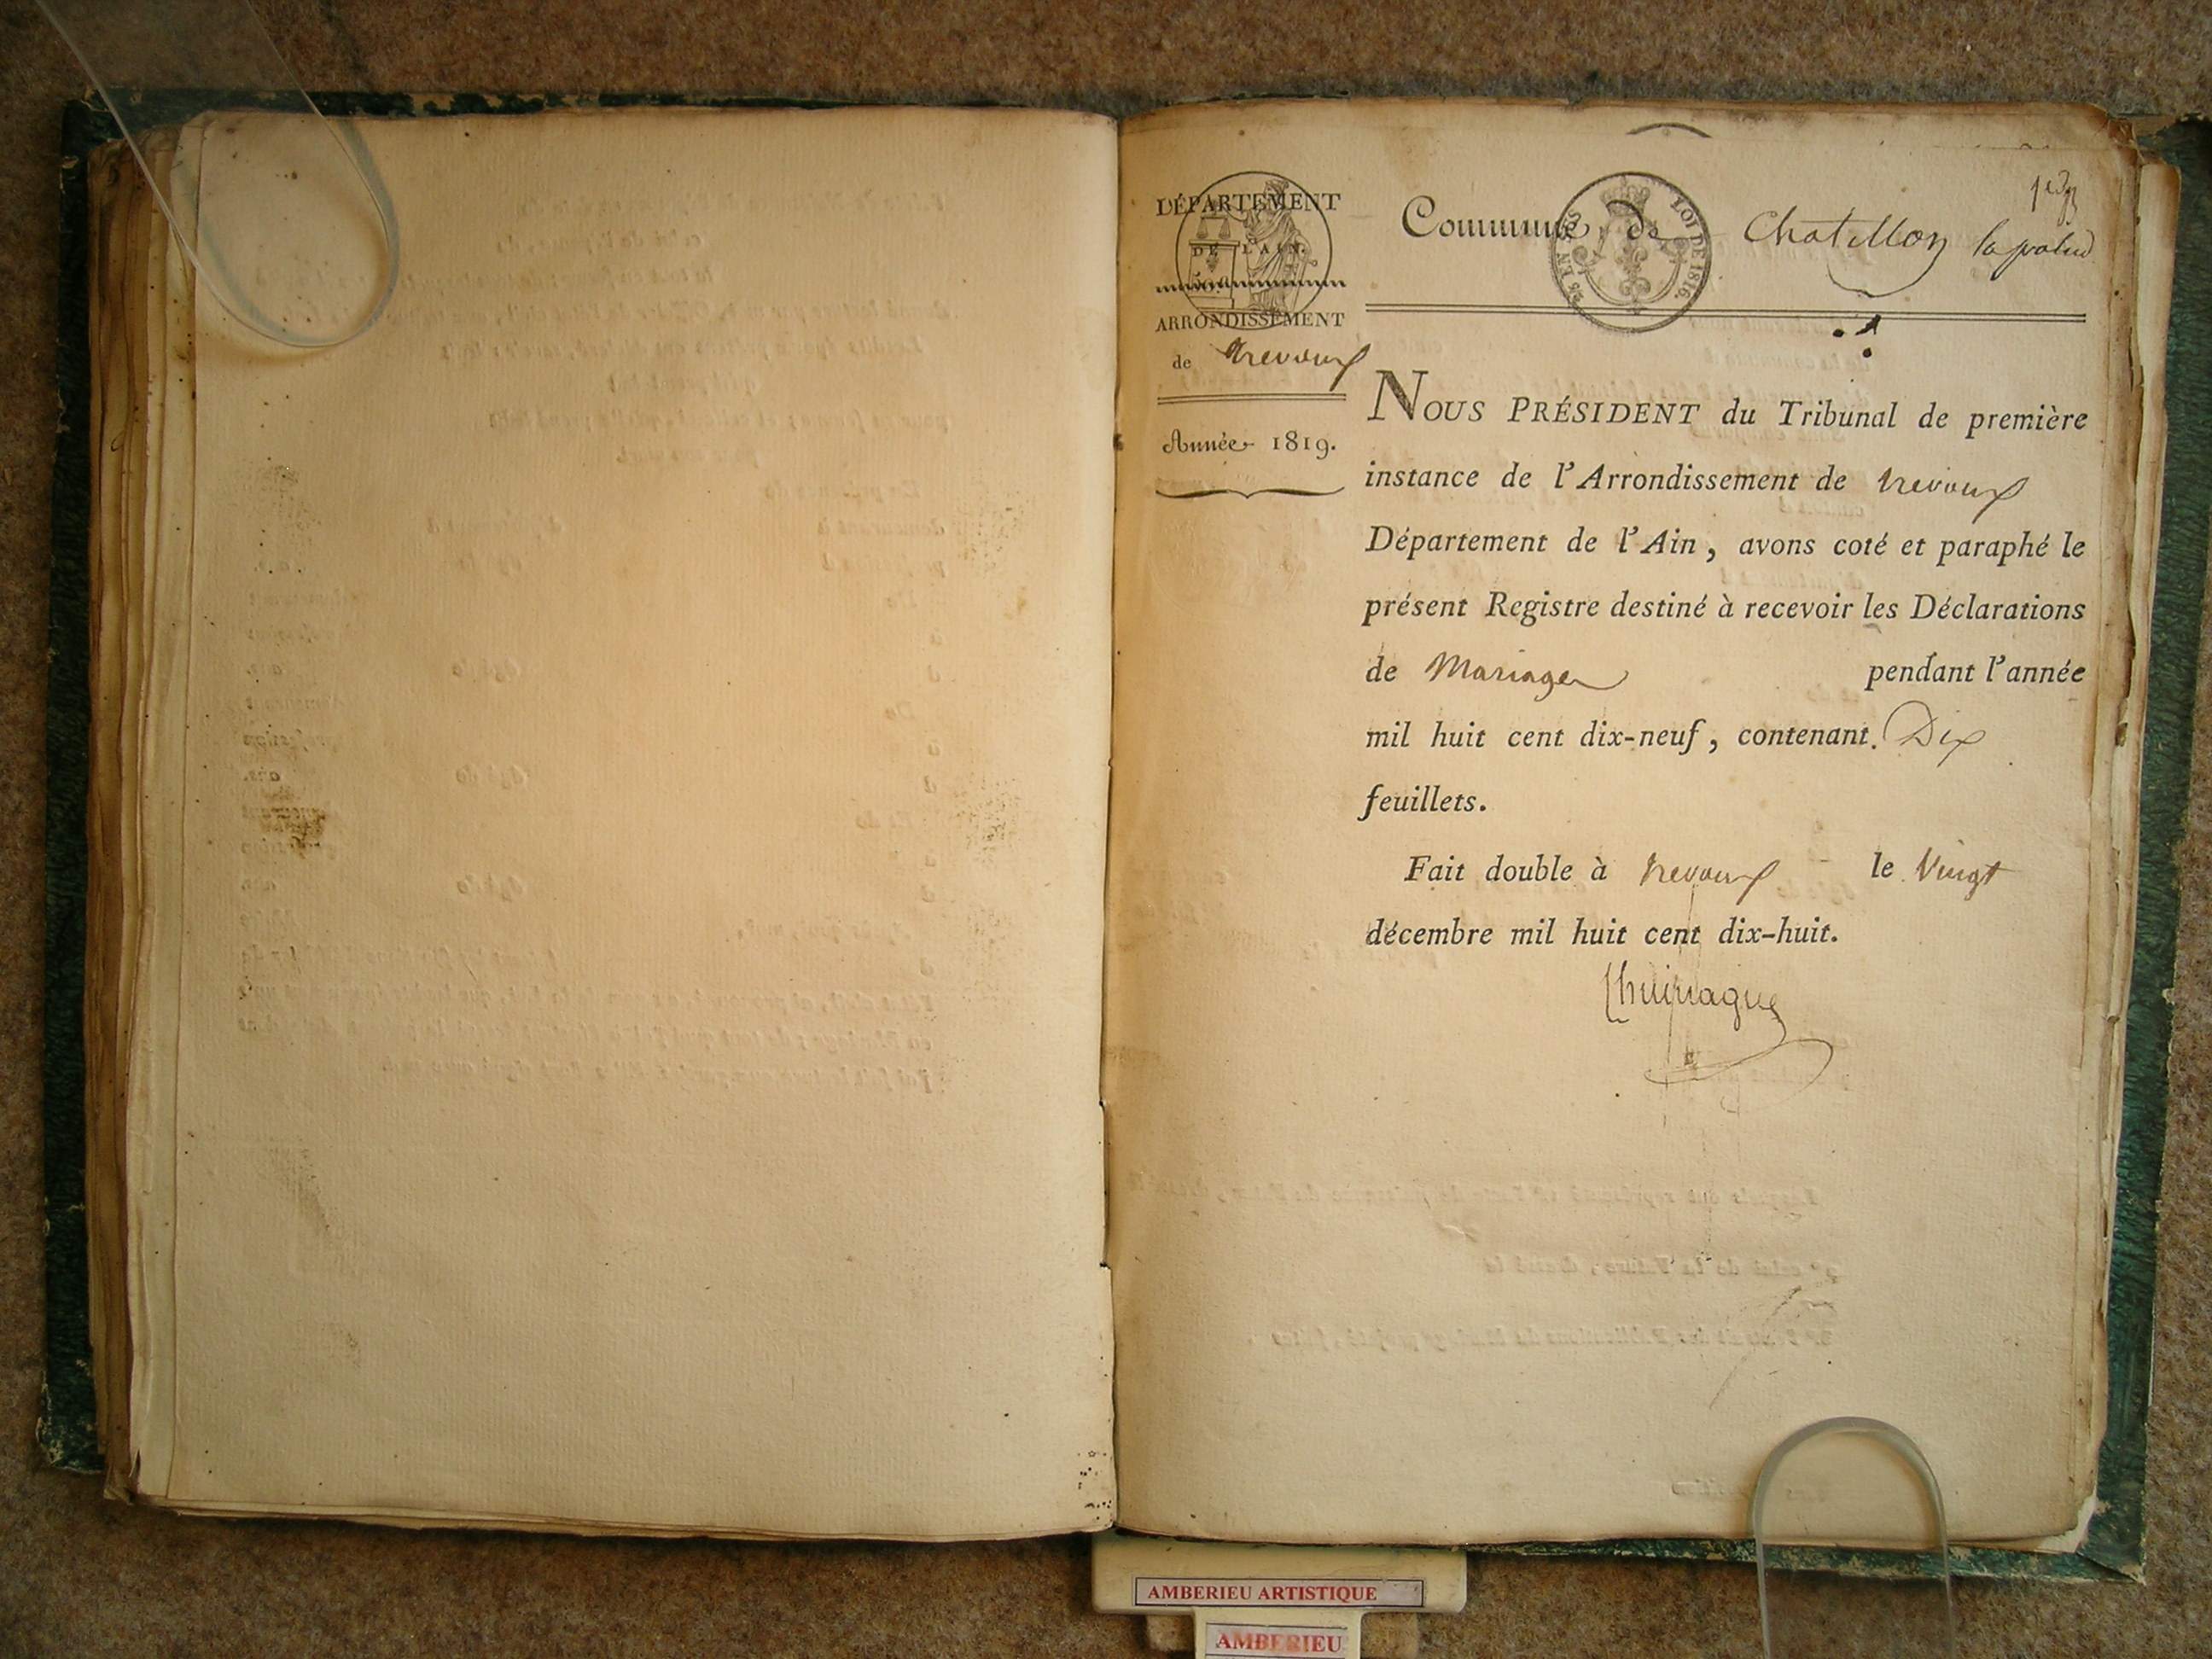 DÉPARTEMENT
DE L'AIN.
ARRONDISSEMENT
de Trevoux
Année 1819.
Commune de Chatillon la palud
LOI DE 1816.
NOUS PRÉSIDENT du Tribunal de première
instance de l'Arrondissement de trevoux
Département de l'Ain, avons coté et paraphé le
présent Registre destiné à recevoir les Déclarations
de Mariages pendant l'année
mil huit cent dix-neuf, contenant Dix
feuillets.
Fait double à trevoux le Vingt
décembre mil huit cent dix-huit.
AMBERIEU ARTISTIQUE
AMBERIEU